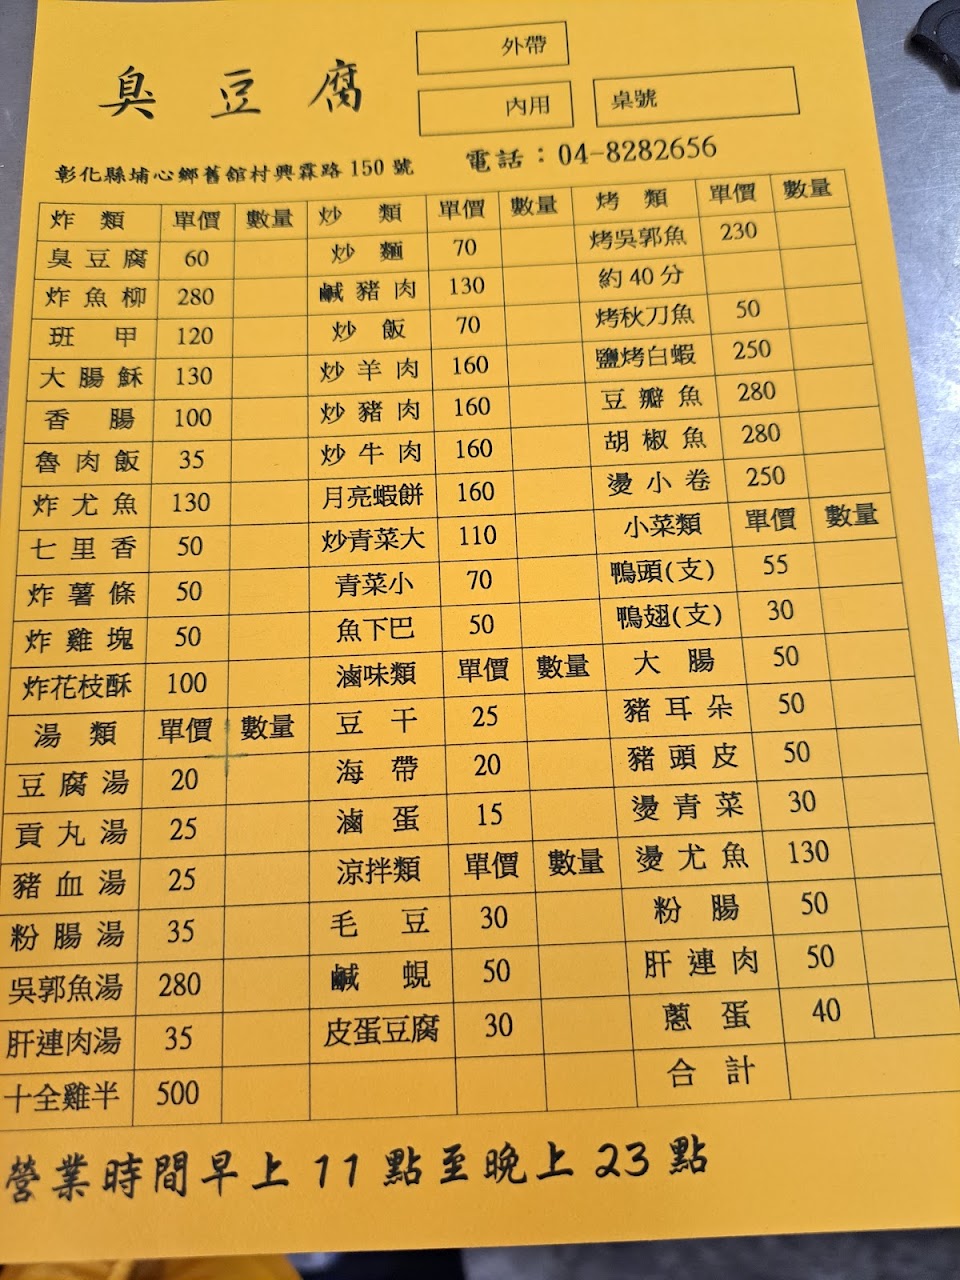 外帶
臭豆腐
內用 桌號
彰化縣埔心鄉舊館村興霖路150號 電話：04-8282656
炸類 單價 數量 炒類 單價 數量 烤類 單價 數量
臭豆腐 60 炒麵 70 烤吳郭魚 230
炸魚柳 280 鹹豬肉 130 約40分
班甲 120 炒飯 70 烤秋刀魚 50
大腸穌 130 炒羊肉 160 鹽烤白蝦 250
香腸 100 炒豬肉 160 豆瓣魚 280
魯肉飯 35 炒牛肉 160 胡椒魚 280
炸尤魚 130 月亮蝦餅 160 燙小卷 250
七里香 50 炒青菜大 110 小菜類 單價 數量
炸薯條 50 青菜小 70 鴨頭(支) 55
炸雞塊 50 魚下巴 50 鴨翅(支) 30
炸花枝酥 100 滷味類 單價 數量 大腸 50
湯類 單價 數量 豆干 25 豬耳朵 50
豆腐湯 20 海帶 20 豬頭皮 50
貢丸湯 25 滷蛋 15 燙青菜 30
豬血湯 25 涼拌類 單價 數量 燙尤魚 130
粉腸湯 35 毛豆 30 粉腸 50
吳郭魚湯 280 鹹蜆 50 肝連肉 50
肝連肉湯 35 皮蛋豆腐 30 蔥蛋 40
十全雞半 500 合計
營業時間早上11點至晚上23點